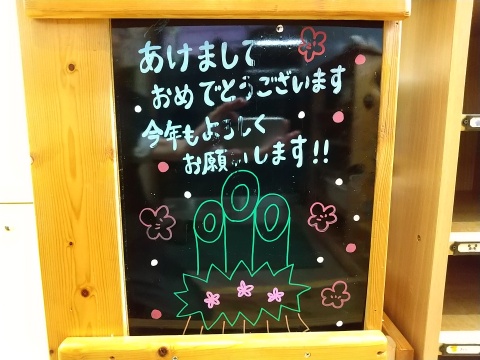 あけまして
おめでとうございます
今年もよろしく
お願いします!!